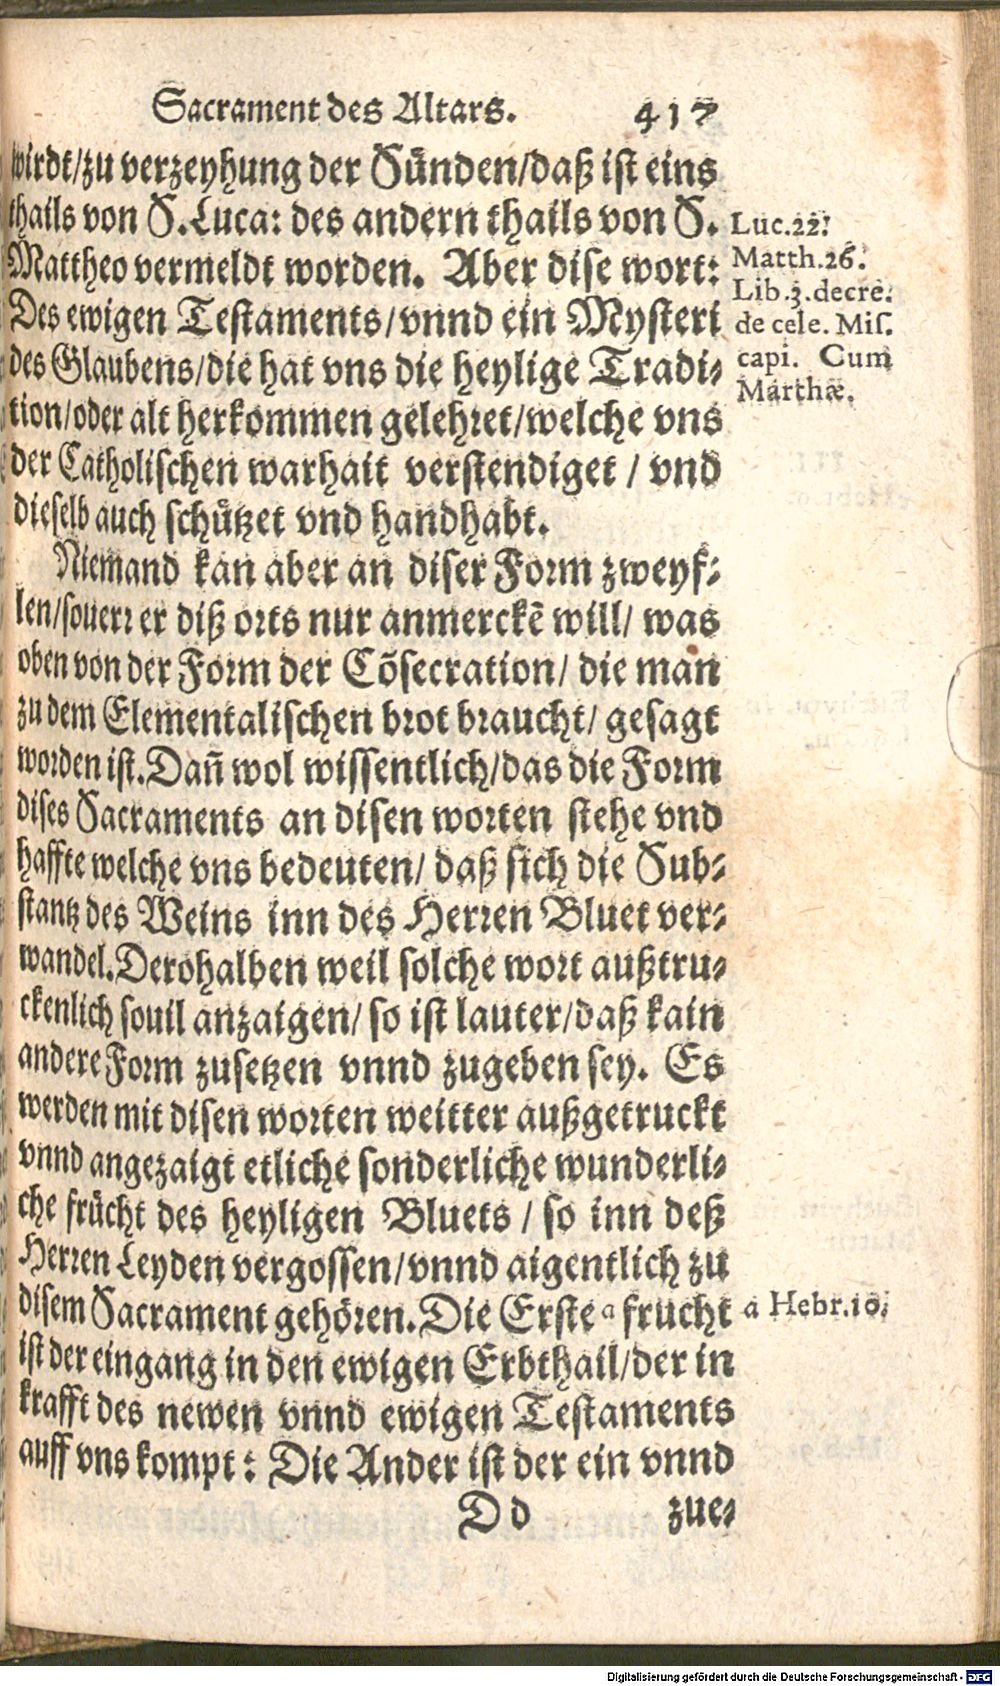 Sacrament des Altars. 417
wirdt/zu verzeyhung der Sünden/daß ist eins
thails von S. Luca: des andern thails von S.
Mattheo vermeldt worden. Aber dise wort:
Des ewigen Testaments/vnnd ein Mysteri
des Glaubens/die hat vns die heylige Tradi-
tion/oder alt herkommen gelehret/welche vns
der Catholischen warhait verstendiget / vnd
dieselb auch schützet vnd handhabt.
Luc.22.
Matth.26.
Lib.3.decre.
de cele. Mis.
capi. Cum
Marthæ.
Niemand kan aber an diser Form zweyf-
len/souerr er diß orts nur anmerckē will/ was
oben von der Form der Cōsecration/ die man
zu dem Elementalischen brot braucht/ gesagt
worden ist. Dañ wol wissentlich/das die Form
dises Sacraments an disen worten stehe vnd
haffte welche vns bedeuten/ daß sich die Sub-
stantz des Weins inn des Herren Bluet ver-
wandel. Derohalben weil solche wort außtru-
ckenlich souil anzaigen/ so ist lauter/daß kain
andere Form zusetzen vnnd zugeben sey. Es
werden mit disen worten weitter außgetruckt
vnnd angezaigt etliche sonderliche wunderli-
che frücht des heyligen Bluets / so inn deß
Herren Leyden vergossen/vnnd aigentlich zu
disem Sacrament gehören. Die Erste a frucht
a Hebr.10.
ist der eingang in den ewigen Erbthail/der in
krafft des newen vnnd ewigen Testaments
auff vns kompt: Die Ander ist der ein vnnd
D d zue-
Digitalisierung gefördert durch die Deutsche Forschungsgemeinschaft - DFG